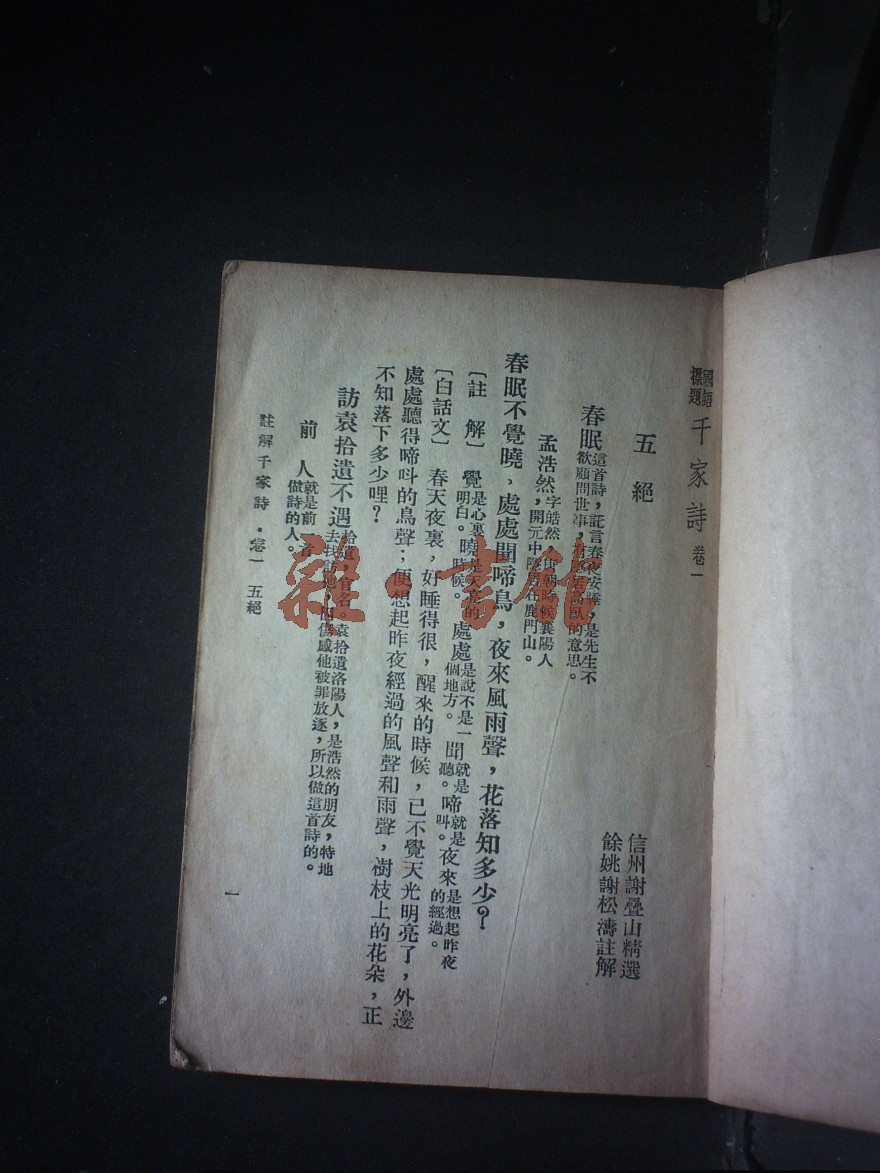 國語標題 千家詩 卷一
信州謝疊山精選
餘姚謝松濤註解
五絕
春眠 這首詩,託言春夜安睡,是先生不欲顧問世事,有隱居高臥的意思。
孟浩然,字皓然 唐朝時候襄陽人,開元中隱居在鹿門山。
春眠不覺曉,處處聞啼鳥,夜來風雨聲,花落知多少?
〔註 解〕 覺是心裏明白。曉是天亮的時候。處處是說不是一個地方。聞就是聽。啼就是叫。夜來是想起昨夜的經過。
〔白話文〕 春天夜裏,好睡得很,醒來的時候,已不覺天光明亮了,外邊
處處聽得啼呌的鳥聲;便想起昨夜經過的風聲和雨聲,樹枝上的花朵,正
不知落下多少哩?
訪袁拾遺不遇 拾遺,官名。袁拾遺洛陽人,是浩然的朋友,特地去找訪他,因傷感他被罪放逐,所以做這首詩的。
前 人 就是前一首做詩的人。
註解千家詩・卷一 五絕
一
雜・書館